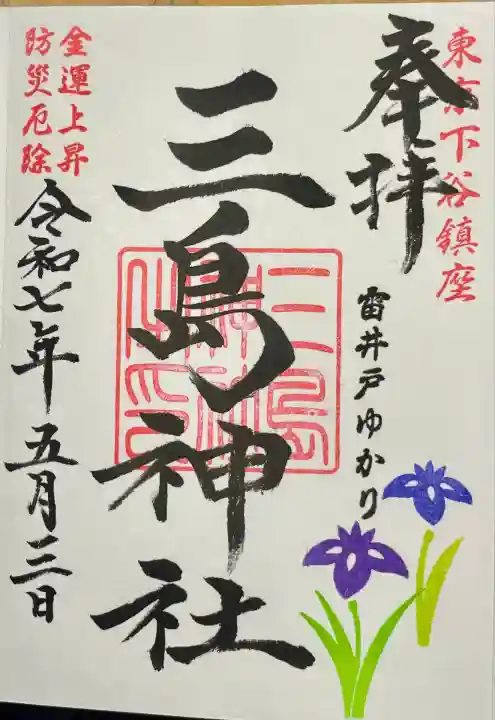 東京下谷鎮座
奉拝
雷井戸ゆかり
三島神社
三島神社之印
金運上昇
防災厄除
令和七年五月三日